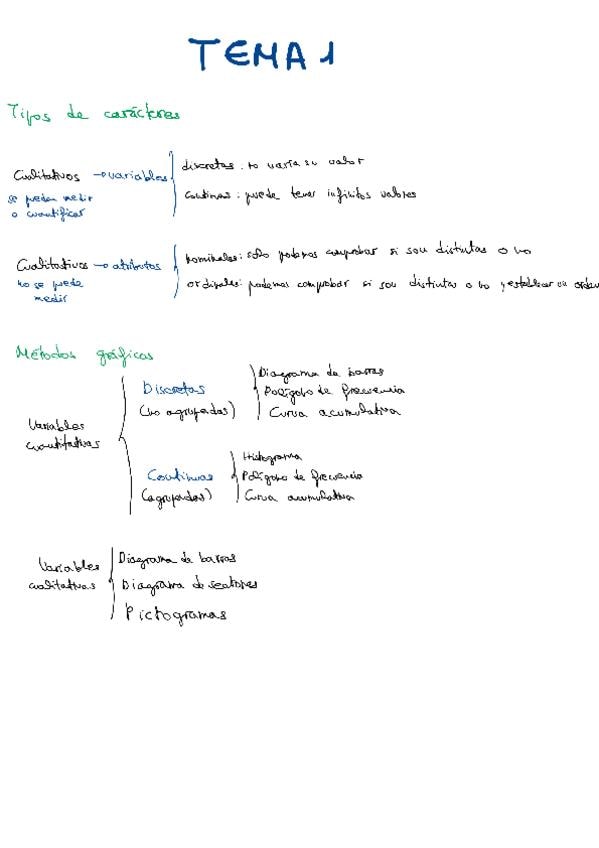 TEMA 1
Tipos de carácteres
Cualitativos → variables
se pueden medir
o cuantificar
discretas: no varía su valor
continuas: puede tener infinitos valores
Cualitativos → atributos
no se puede
medir
nominales: sólo podemos comprobar si son distintas o no
ordinales: podemos comprobar si son distintas o no y establecer un orden
Métodos gráficos
Variables
cuantitativas
Discretas
(no agrupadas)
Diagrama de barras
Polígono de frecuencia
Curva acumulativa
Continuas
(agrupadas)
Histograma
Polígono de frecuencia
Curva acumulativa
Variables
cualitativas
Diagrama de barras
Diagrama de sectores
Pictogramas